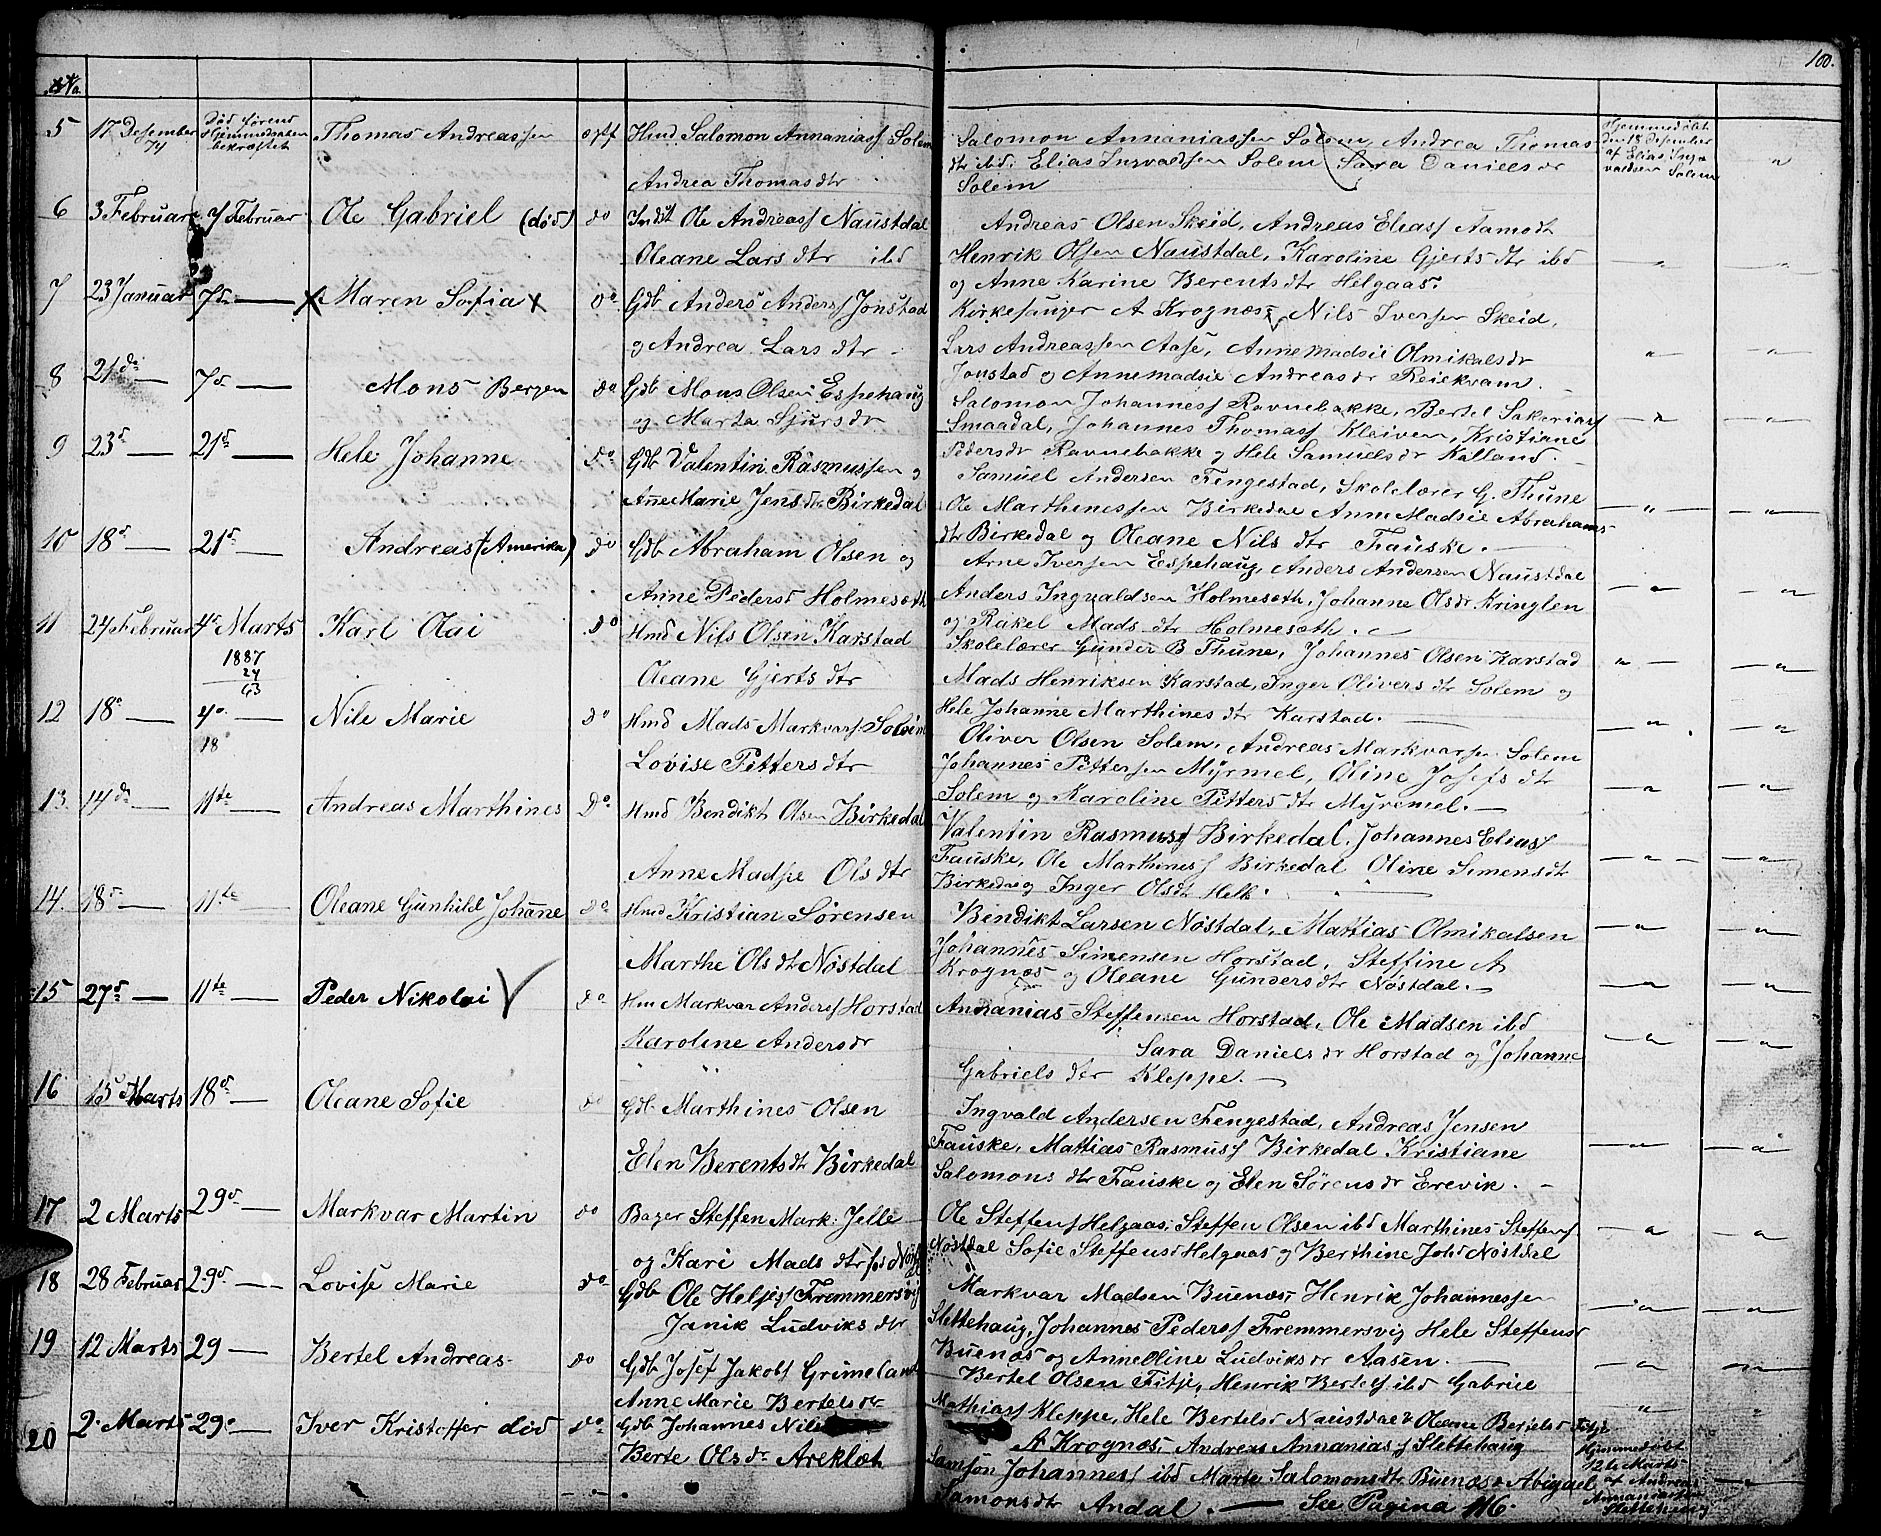 100.
No.
5 17 Desember 74 Død førend Hjemmedaaben bekræftet Thomas Andreassen Hmd Salomon Annaniass Solem
Andrea Thomas dtr
Salomon Annaniassen Solem, Andrea Thomas
dtr ibd. Elias Ingvaldsen Solem Sara Daniels dr
Solem
Hjemmedøbt
den 18 Desember
af Elias Ing=
valdsen Solem
6 3 Februar 7 Februar Ole Gabriel (død) do Indst Ole Andreass Naustdal
Oleane Lars dtr ibd
Andreas Olsen Skeid, Andreas Eliass Aamodt
Henrik Olsen Naustdal, Karoline Gjerts dtr ibd
og Anne Karine Berents dtr Helgaas.
7 23 Januar 7 d. Maren Sofia do Gdb Anders Anderss Jonstad
og Andrea Lars dtr
Kirkesanger A Krognæs Nils Iversen Skeid,
Lars Andreassen Aase, Anne Madsie Olmikals dr
Jonstad og Anne Madsie Andreas dr Reiekvam.
8 21 do 7 d. Mons Bergen do Gdb Mons Olsen Espehaug
og Marta Sjurs dr
Salomon Johanness Ravnebakke, Bertel Sakariass
Smaadal, Johannes Thomass Kleiven, Kristiane
Peders dr Ravnebakke og Hele Samuels dr Kalland.
9 23 d 21 d Hele Johanne do Gdb Valentin Rasmussen og
Anne Marie Jens dtr Birkedal
Samuel Andersen Fengestad, Skolelærer G. Thune
Ole Marthinessen Birkedal Anne Madsie Abrahams
dtr Birkedal og Oleane Nils dtr Fauske.
10 18 d 21 d. Andreas (Amerika) do Gdb Abraham Olsen og
Anne Peders d Holmesæth
Arne Iversen Espehaug, Anders Andersen Naustdal
Anders Ingvaldsen Holmesæth, Johanne Ols dr Kringlen
og Rakel Mads dtr Holmesæth.
11 24 Februar 4 d Marts Karl Olai do Hmd Nils Olsen Karstad
1887
24
63
Oleane Gjerts dtr
Skolelærer Gunder B Thune, Johannes Olsen Karstad
Mads Henriksen Karstad, Inger Olivers dtr Solem og
Hele Johanne Marthines dtr Karstad.
12 18 d 4 d. Nile Marie do Hmd Mads Markvars Solem
18
Lovise Pitters dtr
Oliver Olsen Solem, Andreas Markvarsen Solem
Johannes Pittersen Myrmel, Oline Josefs dtr
Solem og Karoline Pitters dtr Myremel.
13 14 do 11te Andreas Marthines Do Hmd Bendikt Olsen Birkedal
Anne Madsie Ols dtr
Valentin Rasmuss Birkedal, Johannes Eliass
Fauske, Ole Marthiness Birkedal Oline Simens dt
Birkedal og Inger Ols dt Helle.
14. 18 d 11te Oleane Gunhild Johanne do Hmd Kristian Sørensen
Marthe Ols dtr Nøstdal
Bendikt Larsen Nøstdal, Mattias Olmikalsen
Johannes Simensen Horstad, Steffine A
Krognæs og Oleane Gunders dtr Nøstdal.
15 27 d. 11te Peder Nikolai do Hm Markvar Anderss Horstad
Karoline Anders dr
Annanias Steffensen Horstad, Ole Madsen ibd
Sara Daniels dr Horstad og Johanne
Gabriels dtr Kleppe.
16 15 Marts 18 d Oleane Sofie do Gdb Marthines Olsen
Elen Berents dtr Birkedal
Ingvald Andersen Fengestad, Andreas Jensen
Fauske, Mattias Rasmuss Birkedal Kristiane
Salomons dtr Fauske og Elen Sørens dr Erevik.
17 2 Marts 29 d Markvar Martin do Bager Steffen Mark. Jelle
og Kari Mads dtr
Ole Steffens Helgaas, Steffen Olsen ibd Marthines Steffens
Nøstdal Sofie Steffens d Helgaas og Berthine Joh d Nøstdal
18 28 Februar 29 d Lovise Marie do Gdb Ole Helgess Fremmersvig
Janik Ludviks dtr
Markvar Madsen Buenæs, Henrik Johannessen
Slettehaug, Johannes Pederss Fremmersvig Hele Steffens d
Buenæs og Anne Oline Ludviks dr Aasen.
19 12 Marts 29 Bertel Andreas do Gdb Josef Jakobs Grimeland
Anne Marie Bertels dr
Bertel Olsen Fitje, Henrik Bertels ibd Gabriel
Mathiass Kleppe, Hele Bertels d Naustdal & Oleane Bertels d Fitje
20 2 Marts 29 d Iver Kristoffer død do Gdb Johannes Nils
Berte Ols dr Areklet
A Krognæs, Andreas Annaniass Slettehaug
Samson Johanness ibd Marte Salomons dtr Buenæs & Abigael
Samons dtr Andal. See Pagina 116.
Hjemmedøbt
12te Marts
af Andreas
Annaniassen
Slettehaug